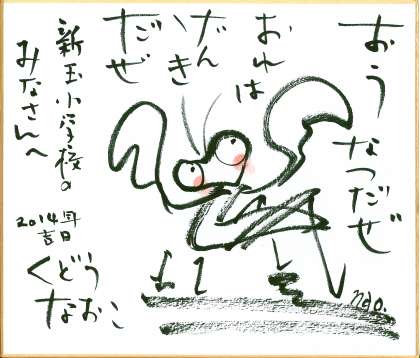 おう
なつだぜ
おれは
げんき
だぜ
新玉小学校の
みなさんへ
2014年
吉日
くどう
なおこ
nao.